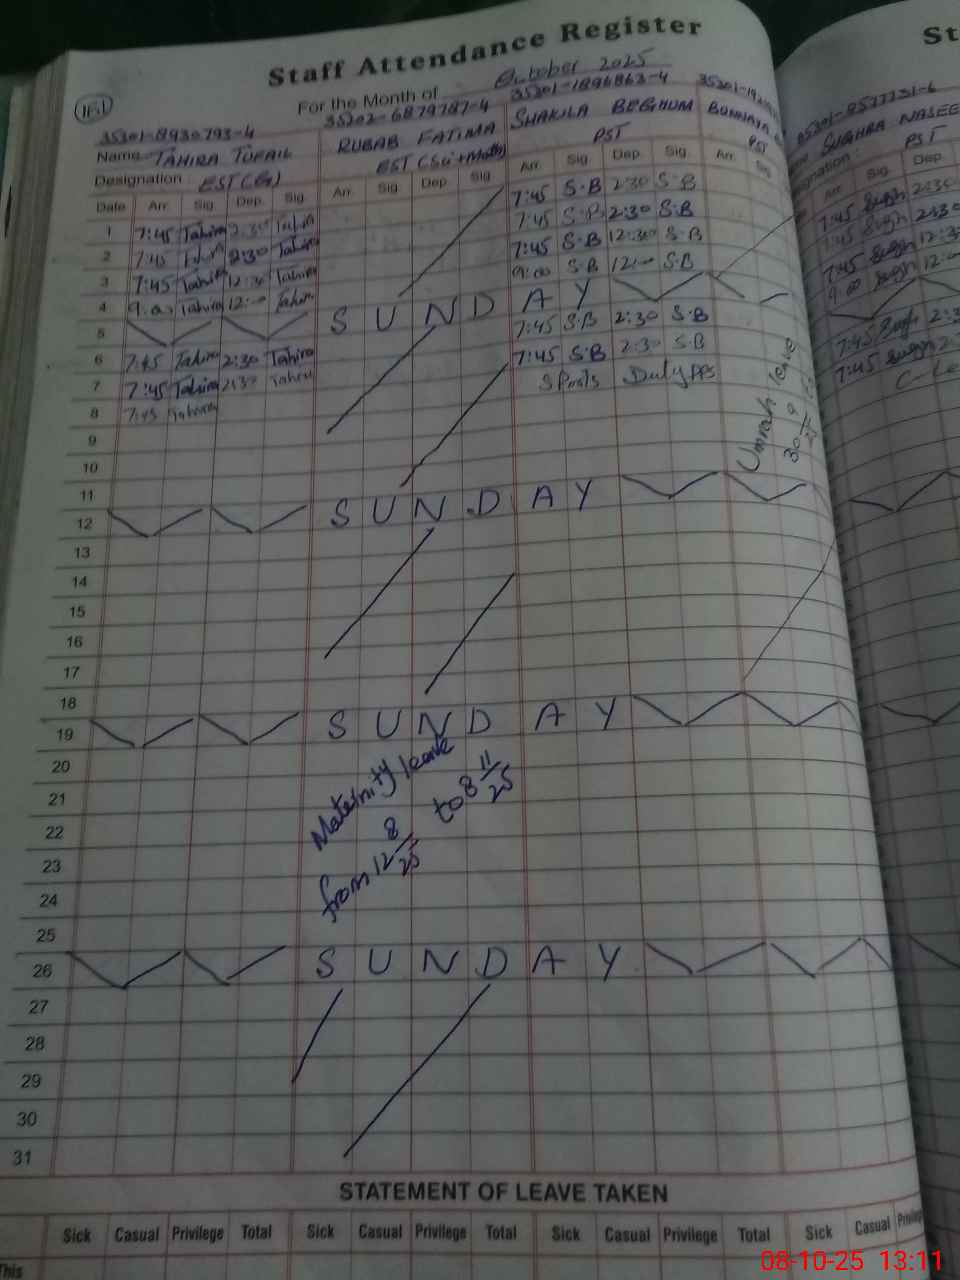 Staff Attendance Register
For the Month of October 2025
1151
35301-8930793-4 35202-6879787-4 35301-1896863-4
Name TAHIRA TUFAIL RUBAB FATIMA SHAKILA BEGHUM
Designation : EST (Eg) EST (Sci+Math) PST PST
Date Arr. Sig. Dep. Sig. Arr. Sig. Dep. Sig. Arr. Sig. Dep. Sig. Arr. Sig.
1 7:45 Tahira 2:30 Tahira 7:45 S.B 2:30 S.B
2 7:45 Tahira 2:30 Tahira 7:45 S.B 2:30 S.B
3 7:45 Tahira 12:30 Tahira 7:45 S.B 12:30 S.B
4 9:00 Tahira 12:00 Tahira 9:00 S.B 12:00 S.B
5 S U N D A Y
6 7:45 Tahira 2:30 Tahira 7:45 S.B 2:30 S.B
7 7:45 Tahira 2:30 Tahira 7:45 S.B 2:30 S.B
8 7:45 Tahira Sports Duty PPS
9
10
11
12 S U N D A Y
13
14
15
16
17
18
19 S U N D A Y
20
21
22
23
24
25
26 S U N D A Y
27
28
29
30
31
Maternity leave
from 12 8/25 to 8 11/25
Umrah leave
STATEMENT OF LEAVE TAKEN
Sick Casual Privilege Total Sick Casual Privilege Total Sick Casual Privilege Total Sick Casual
This
St
SUGHRA
PST
Arr. Sig. Dep.
7:45 Sugh 2:30
7:45 Sugh 2:30
7:45 Sugh
9:00 Sugh
7:45 Sugh
7:45 Sugh
08-10-25 13:11